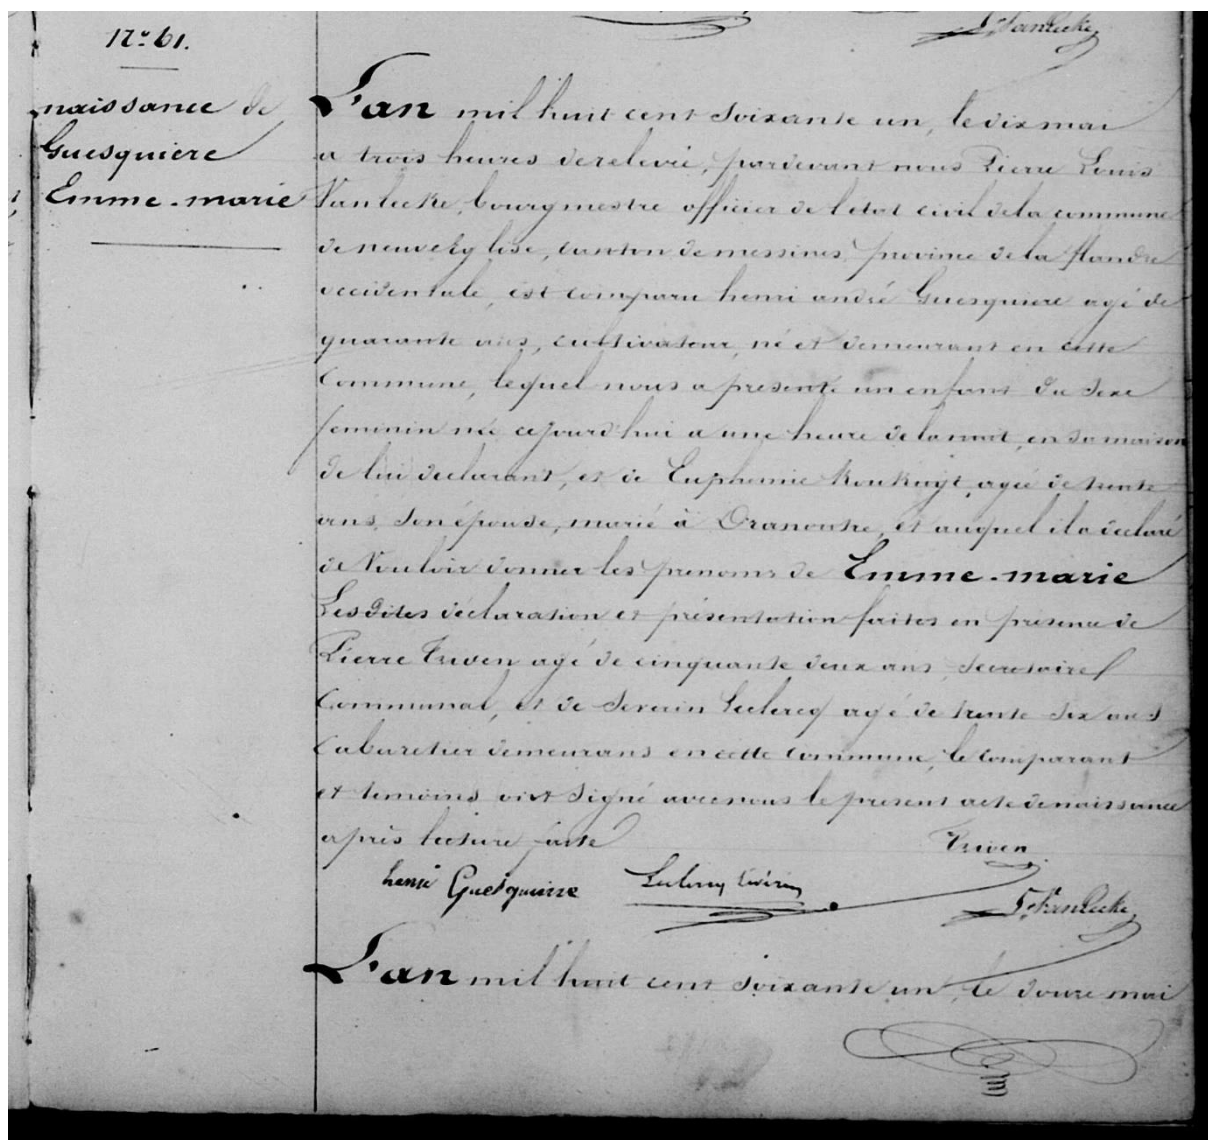 P. Vanlecke
N.° 61.
naissance de
Guesquiere
Emme-marie
L'an mil huit cent soixante un, le dix mai
a trois heures de relevée, pardevant nous Pierre Louis
Vanlecke, bourgmestre officier de l'etat civil de la commune
de neuveEglise, canton de messines, province de la flandre
occidentale, est comparu henri andré Guesquiere agé de
quarante ans, cultivateur, né et demeurant en cette
Commune, lequel nous a presenté un enfant du sexe
feminin née cejourd'hui a une heure de la nuit, en sa maison
de lui declarant, et de Euphemie agée de trente
ans, son épouse, marié à Dranoutre, et auquel il a declaré
de Vouloir donner les prenoms de Emme-marie
Les dites déclaration et présentation faites en presence de
Pierre Truven agé de cinquante deux ans, Secretaire
Communal, et de Severin Leclercq agé de trente six ans
Cabaretier demeurans en cette commune, le comparant
et temoins ont signé avec nous le present acte de naissance
après lecture faite
Truven
henri Guesquiere Leclercq Sévérin P. Vanlecke
L'an mil huit cent soixante un, le douze mai